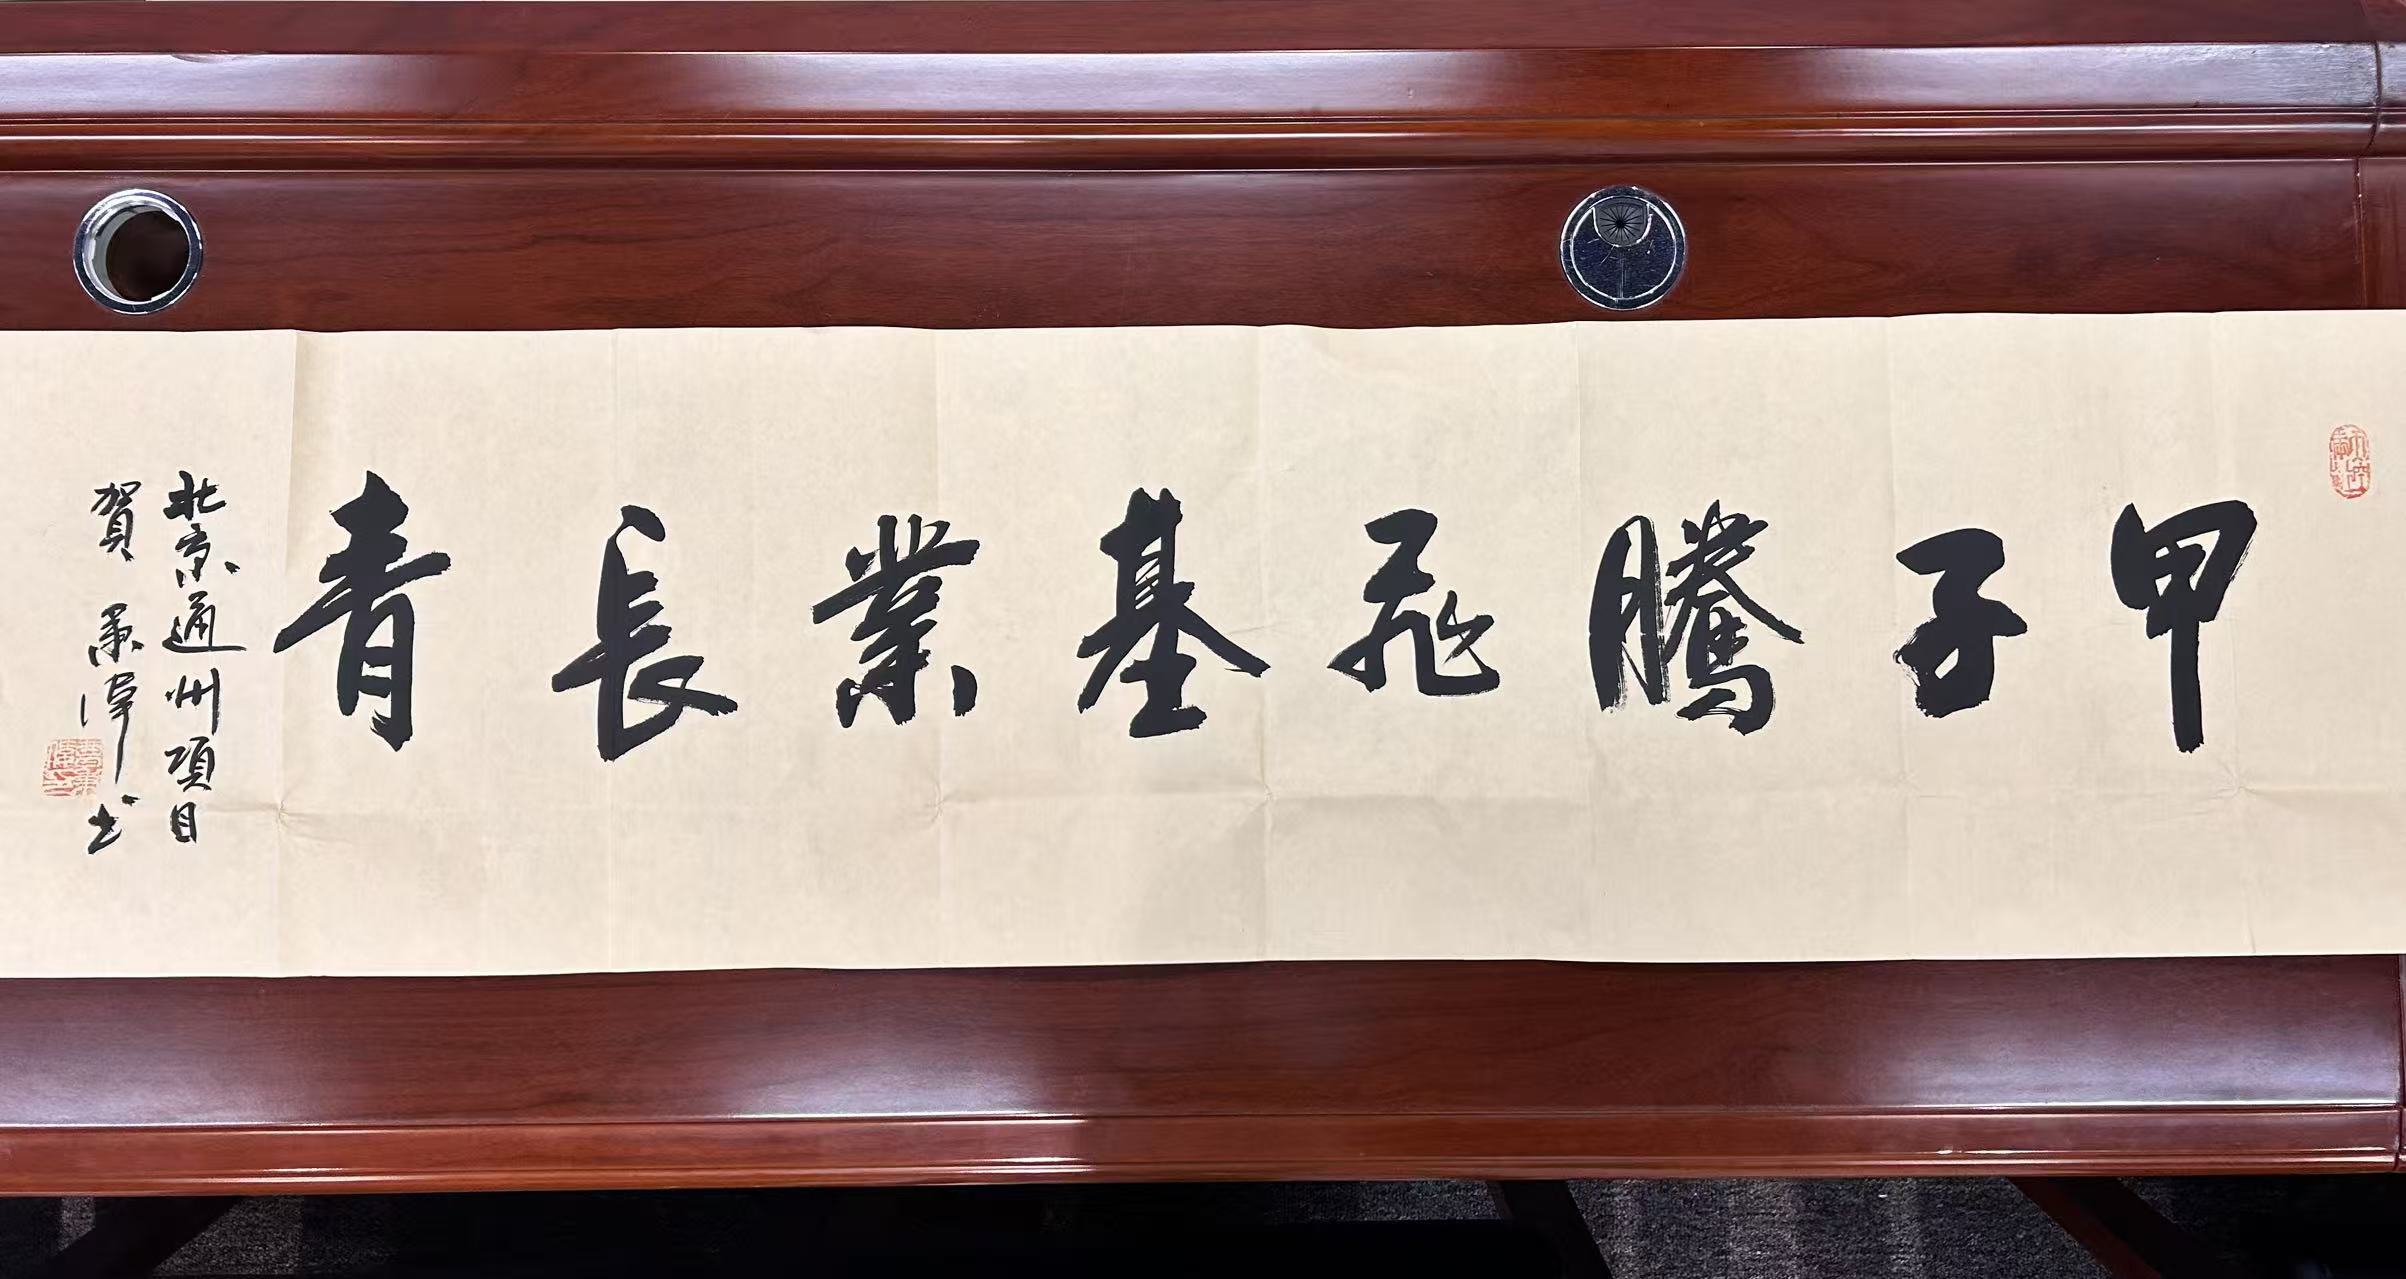 甲子騰飛基業長青
北京通州項目
賀 秉渾书